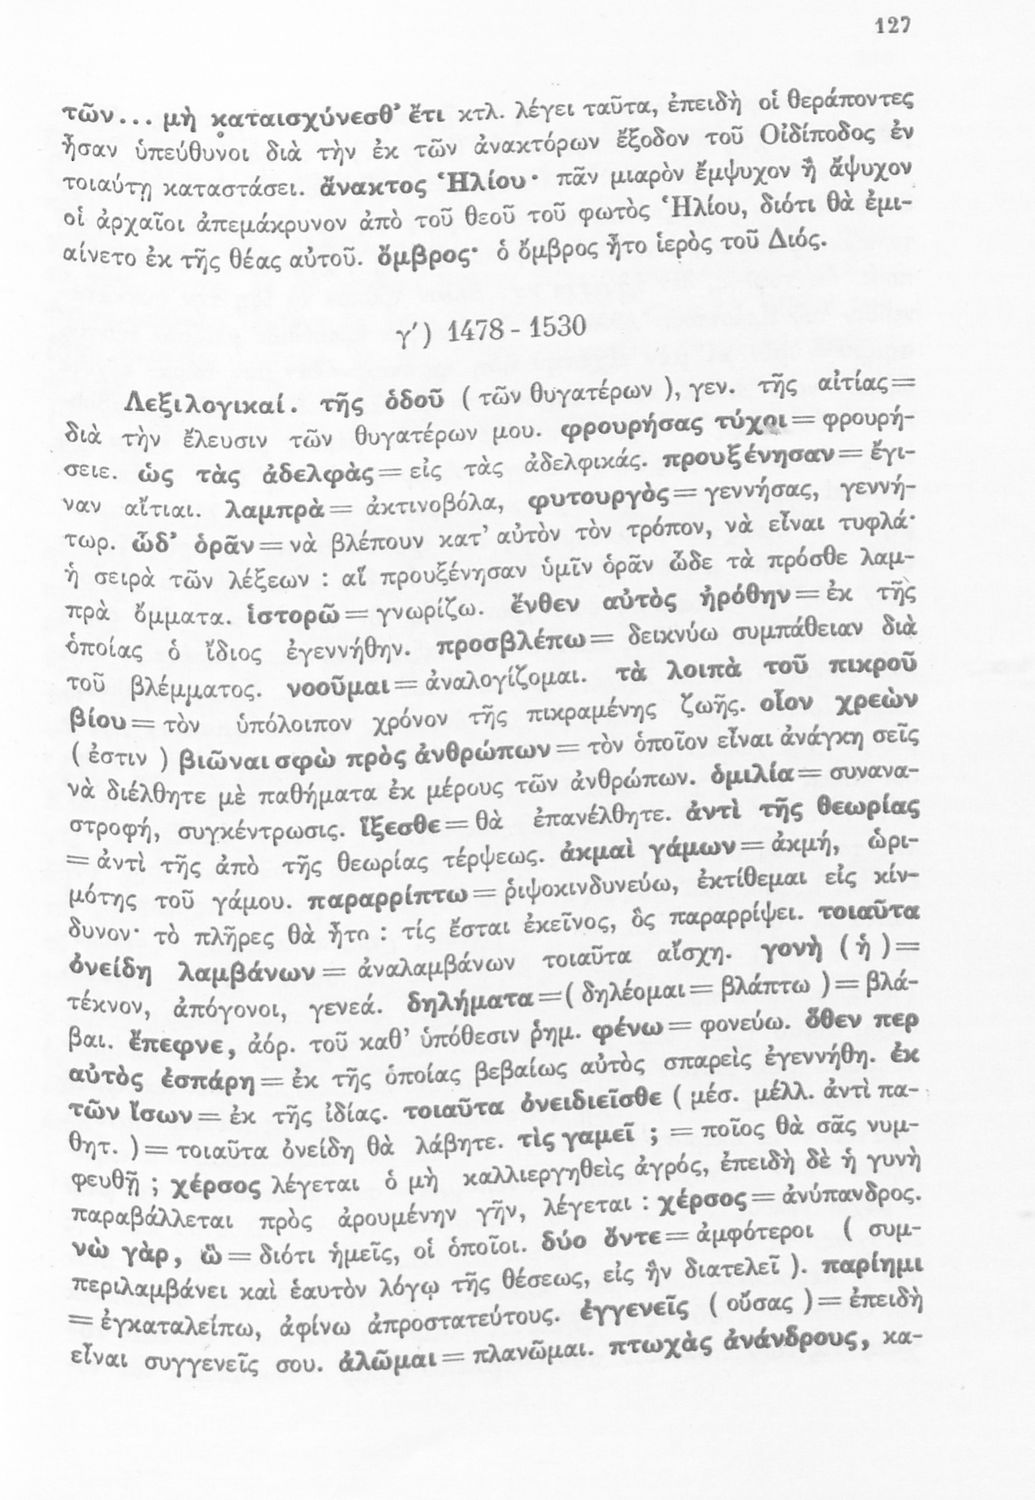 127
τῶν... μὴ καταισχύνεσθ' ἔτι κτλ. λέγει ταῦτα, ἐπειδὴ οἱ θεράποντες
ἦσαν ὑπεύθυνοι διὰ τὴν ἐκ τῶν ἀνακτόρων ἔξοδον τοῦ Οἰδίποδος ἐν
τοιαύτῃ καταστάσει. ἄνακτος Ἡλίου· πᾶν μιαρὸν ἔμψυχον ἢ ἄψυχον
οἱ ἀρχαῖοι ἀπεμάκρυνον ἀπὸ τοῦ θεοῦ τοῦ φωτὸς Ἡλίου, διότι θὰ ἐμι-
αίνετο ἐκ τῆς θέας αὐτοῦ. ὄμβρος· ὁ ὄμβρος ἦτο ἱερὸς τοῦ Διός.
γ') 1478 - 1530
Λεξιλογικαί. τῆς ὁδοῦ ( τῶν θυγατέρων ), γεν. τῆς αἰτίας=
διὰ τὴν ἔλευσιν τῶν θυγατέρων μου. φρουρήσας τύχοι = φρουρή-
σειε. ὡς τὰς ἀδελφὰς = εἰς τὰς ἀδελφικάς. προυξένησαν = ἔγι-
ναν αἴτιαι. λαμπρὰ = ἀκτινοβόλα, φυτουργὸς = γεννήσας, γεννή-
τωρ. ὧδ' ὁρᾶν = νὰ βλέπουν κατ' αὐτὸν τὸν τρόπον, νὰ εἶναι τυφλά·
ἡ σειρὰ τῶν λέξεων : αἳ προυξένησαν ὑμῖν ὁρᾶν ὧδε τὰ πρόσθε λαμ-
πρὰ ὄμματα. ἱστορῶ = γνωρίζω. ἔνθεν αὐτὸς ἠρόθην = ἐκ τῆς
ὁποίας ὁ ἴδιος ἐγεννήθην. προσβλέπω = δεικνύω συμπάθειαν διὰ
τοῦ βλέμματος. νοοῦμαι = ἀναλογίζομαι. τὰ λοιπὰ τοῦ πικροῦ
βίου = τὸν ὑπόλοιπον χρόνον τῆς πικραμένης ζωῆς. οἷον χρεὼν
( ἐστιν ) βιῶναι σφὼ πρὸς ἀνθρώπων = τὸν ὁποῖον εἶναι ἀνάγκη σεῖς
νὰ διέλθητε μὲ παθήματα ἐκ μέρους τῶν ἀνθρώπων. ὁμιλία = συνανα-
στροφή, συγκέντρωσις. ἵξεσθε = θὰ ἐπανέλθητε. ἀντὶ τῆς θεωρίας
= ἀντὶ τῆς ἀπὸ τῆς θεωρίας τέρψεως. ἀκμαὶ γάμων = ἀκμή, ὡρι-
μότης τοῦ γάμου. παραρρίπτω = ῥιψοκινδυνεύω, ἐκτίθεμαι εἰς κίν-
δυνον· τὸ πλῆρες θὰ ἦτο : τίς ἔσται ἐκεῖνος, ὃς παραρρίψει. τοιαῦτα
ὀνείδη λαμβάνων = ἀναλαμβάνων τοιαῦτα αἴσχη. γονὴ (ἡ )=
τέκνον, ἀπόγονοι, γενεά. δηλήματα =( δηλέομαι = βλάπτω ) = βλά-
βαι. ἔπεφνε, ἀόρ. τοῦ καθ' ὑπόθεσιν ῥημ. φένω = φονεύω. ὅθεν περ
αὐτὸς ἐσπάρη = ἐκ τῆς ὁποίας βεβαίως αὐτὸς σπαρεὶς ἐγεννήθη. ἐκ
τῶν ἴσων = ἐκ τῆς ἰδίας. τοιαῦτα ὀνειδιεῖσθε ( μέσ. μέλλ. ἀντὶ πα-
θητ. ) = τοιαῦτα ὀνείδη θὰ λάβητε. τὶς γαμεῖ ; = ποῖος θὰ σᾶς νυμ-
φευθῇ ; χέρσος λέγεται ὁ μὴ καλλιεργηθεὶς ἀγρός, ἐπειδὴ δὲ ἡ γυνὴ
παραβάλλεται πρὸς ἀρουμένην γῆν, λέγεται : χέρσος = ἀνύπανδρος.
νὼ γὰρ, ὢ = διότι ἡμεῖς, οἱ ὁποῖοι. δύο ὄντε = ἀμφότεροι ( συμ-
περιλαμβάνει καὶ ἑαυτὸν λόγῳ τῆς θέσεως, εἰς ἣν διατελεῖ ). παρίημι
= ἐγκαταλείπω, ἀφίνω ἀπροστατεύτους. ἐγγενεῖς ( οὔσας ) = ἐπειδὴ
εἶναι συγγενεῖς σου. ἀλῶμαι = πλανῶμαι. πτωχὰς ἀνάνδρους, κα-